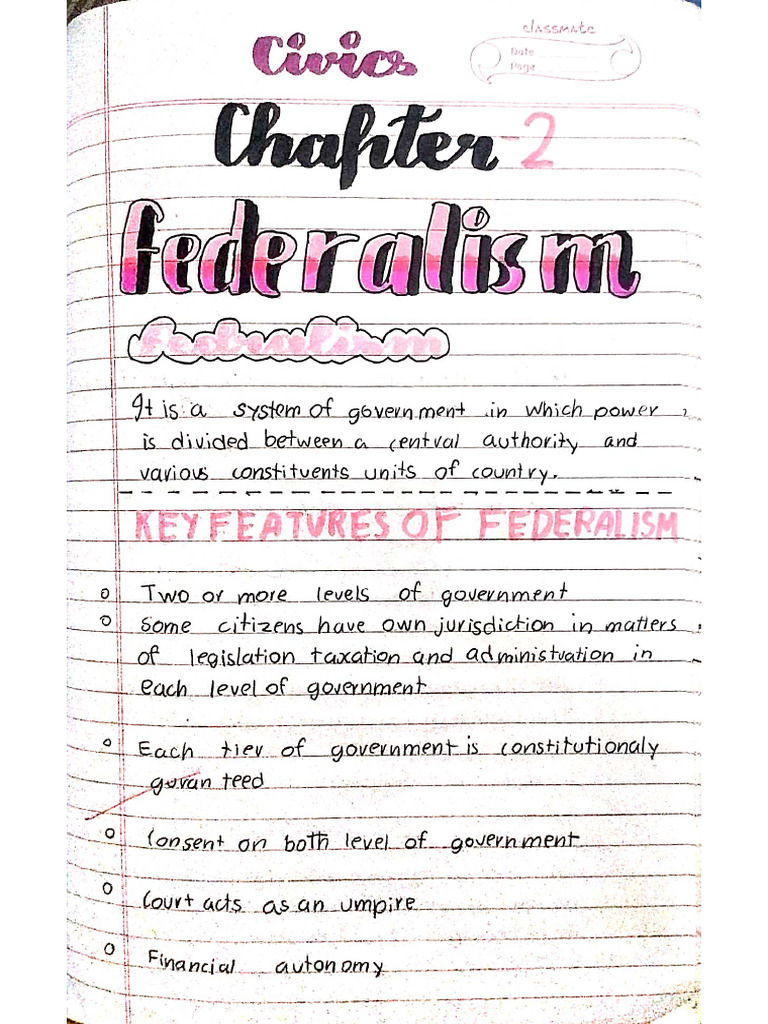 classmate
Date
Page
Civics
Chapter-2
federalism
federalism
It is a system of government in which power
is divided between a central authority and
various constituents units of country.
KEY FEATURES OF FEDERALISM
Two or more levels of government
Some citizens have own jurisdiction in matters
of legislation taxation and administration in
each level of government
Each tier of government is constitutionaly
guran teed
Consent on both level of government
Court acts as an umpire
Financial autonomy